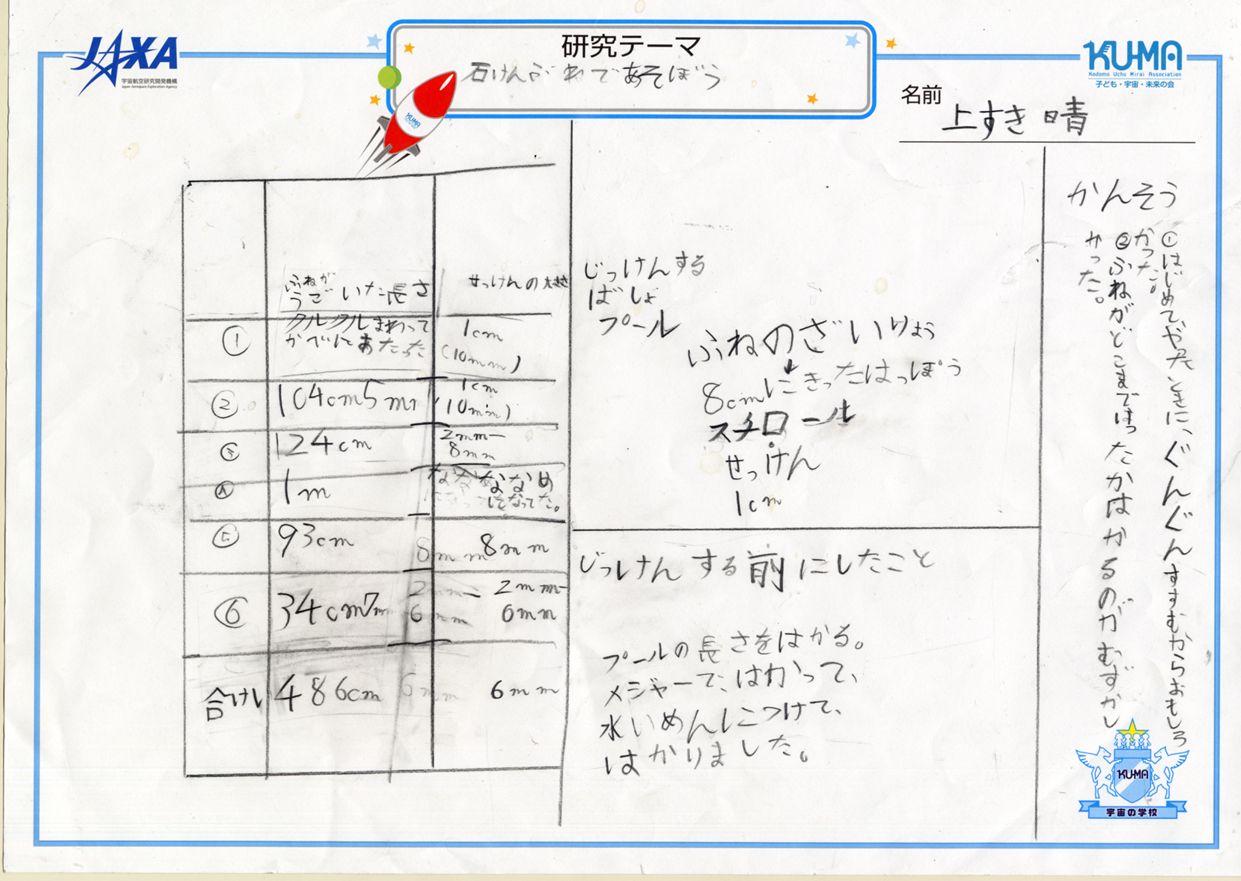 JAXA
宇宙航空研究開発機構
Japan Aerospace Exploration Agency
研究テーマ
石けんふねであそぼう
KUMA
Kodomo Uchu Mirai Association
子ども・宇宙・未来の会
名前
上すき 晴
KUMA
ふねが
うごいた長さ
せっけんの大きさ
① クルクルまわって
かべにあたった
1cm
(10mm)
② 104cm5mm
1cm
(10mm)
③ 124cm
2mm―
8mm
④ 1m
ななめ
になってた。
⑤ 93cm
8mm
⑥ 34cm7mm
2mm―
6mm
合けい 486cm
6mm
じっけんする
ばしょ
プール
ふねのざいりょう
8cmにきったはっぽう
スチロール
せっけん
1cm
じっけんする前にしたこと
プールの長さをはかる。
メジャーで、はかって、
水いめんにつけて、
はかりました。
かんそう
①はじめてやったときに、ぐんぐんすすむからおもしろ
かった。
②ふねがどこまではったかはかるのがむずかし
かった。
KUMA
宇宙の学校